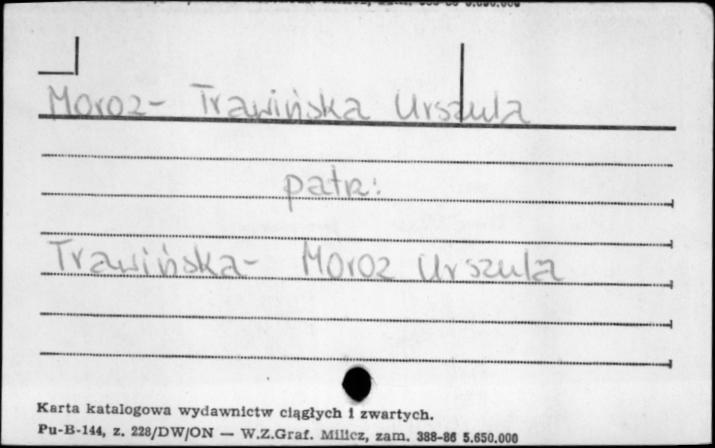 Moroz- Trawińska Urszula
patrz:
Trawińska- Moroz Urszula
Karta katalogowa wydawnictw ciągłych i zwartych.
Pu-B-144, z. 228/DW/ON — W.Z.Graf. Milicz, zam. 388-86 5.650.000